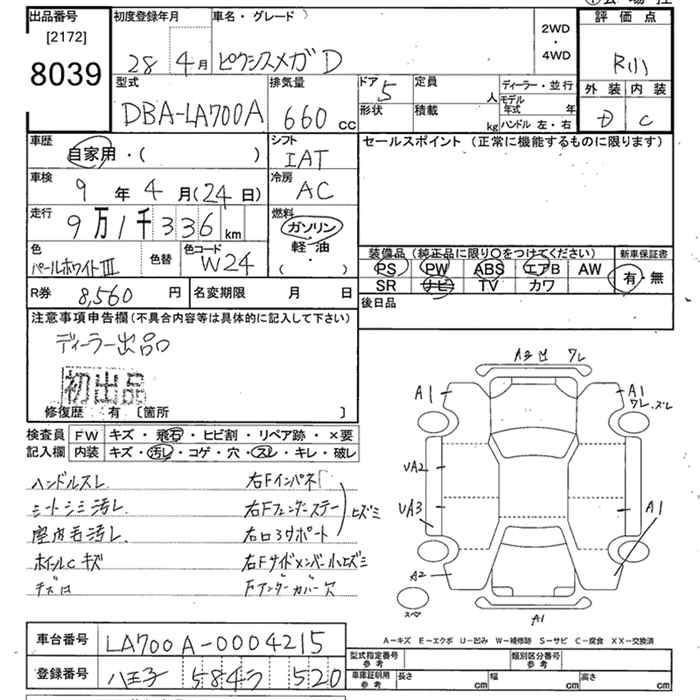 出品番号 初度登録年月 車名・グレード 評価点
[2172]
8039 28 4月 ピクシスメガD 2WD・4WD R
外装 内装
型式 排気量 ドア 5 定員 人 ディーラー・並行
DBA-LA700A 660cc 形状 積載 kg モデル年式 年 ハンドル 左・右 D C
車歴 シフト セールスポイント (正常に機能するものに限ります)
自家用・( ) IAT
車検 冷房
9年 4月(24日) AC
走行 燃料
9万1千336km ガソリン
軽油
( ・ )
色 色替 色コード 装備品(純正品に限り○をつけてください) 新車保証書
パールホワイトⅢ W24 PS PW ABS エアB AW 有・無
SR ナビ TV カワ
R券 8,560円 名変期限 月 日 後日品
注意事項申告欄(不具合内容等は具体的に記入して下さい)
ディーラー出品
初出品
修復歴 有 [箇所 ]
検査員 FW キズ・飛石・ヒビ割・リペア跡・×要
記入欄 内装 キズ・汚レ・コゲ・穴・スレ・キレ・破レ
ハンドルスレ 右Fインパネ
シートシミ汚レ 右Fフェンダーステー
室内毛汚レ 右コアサポート ヒズミ
ホイルCキズ 右Fサイドメンバー小ヒズミ
Fアンダーカバー穴
ワレ
A1 A1
ワレ、ズレ
UA2
UA3 A1
A2
スペア A1
A-キズ E-エクボ U-凹み W-補修跡 S-サビ C-腐食 XX-交換済
車台番号 LA700A-0004215
登録番号 八王子 584 520
型式指定番号 参考 類別区分番号 参考
車庫証明用 参考 長さ cm 幅 cm 高さ cm